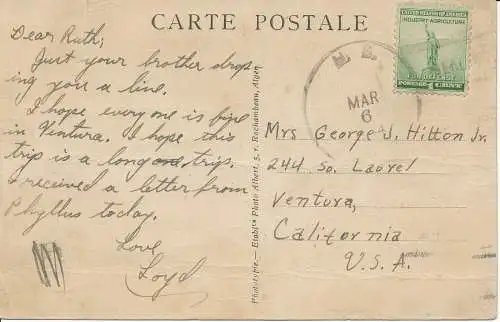 CARTE POSTALE
Dear Ruth;
Just your brother drop-
ing you a line.
I hope everyone is fine
in Ventura. I hope this
trip is a long one trip.
I received a letter from
Phyllus today.
Love
Loyd
Phototypie. — Etablts Photo Albert, 5, r. Rochambeau, Alger
MAR
6
UNITED STATES OF AMERICA
INDUSTRY AGRICULTURE
FOR DEFENSE
POSTAGE 1 CENT
Mrs George J. Hilton Jr.
244 So. Laurel
Ventura,
California
U.S.A.